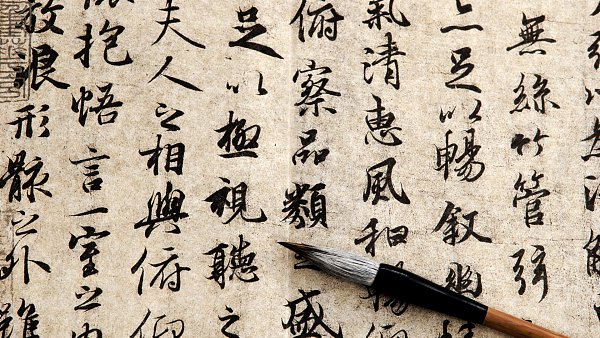 無絲竹管弦
足以暢叙幽情
氣清惠風和暢仰
俯察品類之盛
足以極視聽之
夫人之相與俯仰
抱悟言一室之内
放浪形骸之外雖